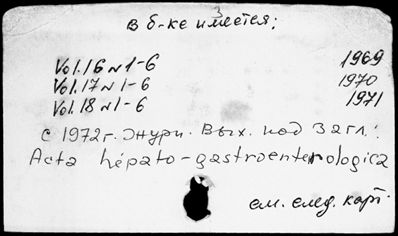 3
в б-ке имеется:
Vol.16 №1-6 1969
Vol.17 №1-6 1970
Vol.18 №1-6 1971
с 1972г. журн. вых. под загл.:
Acta hépato-gastroenterologica
см. след. карт.